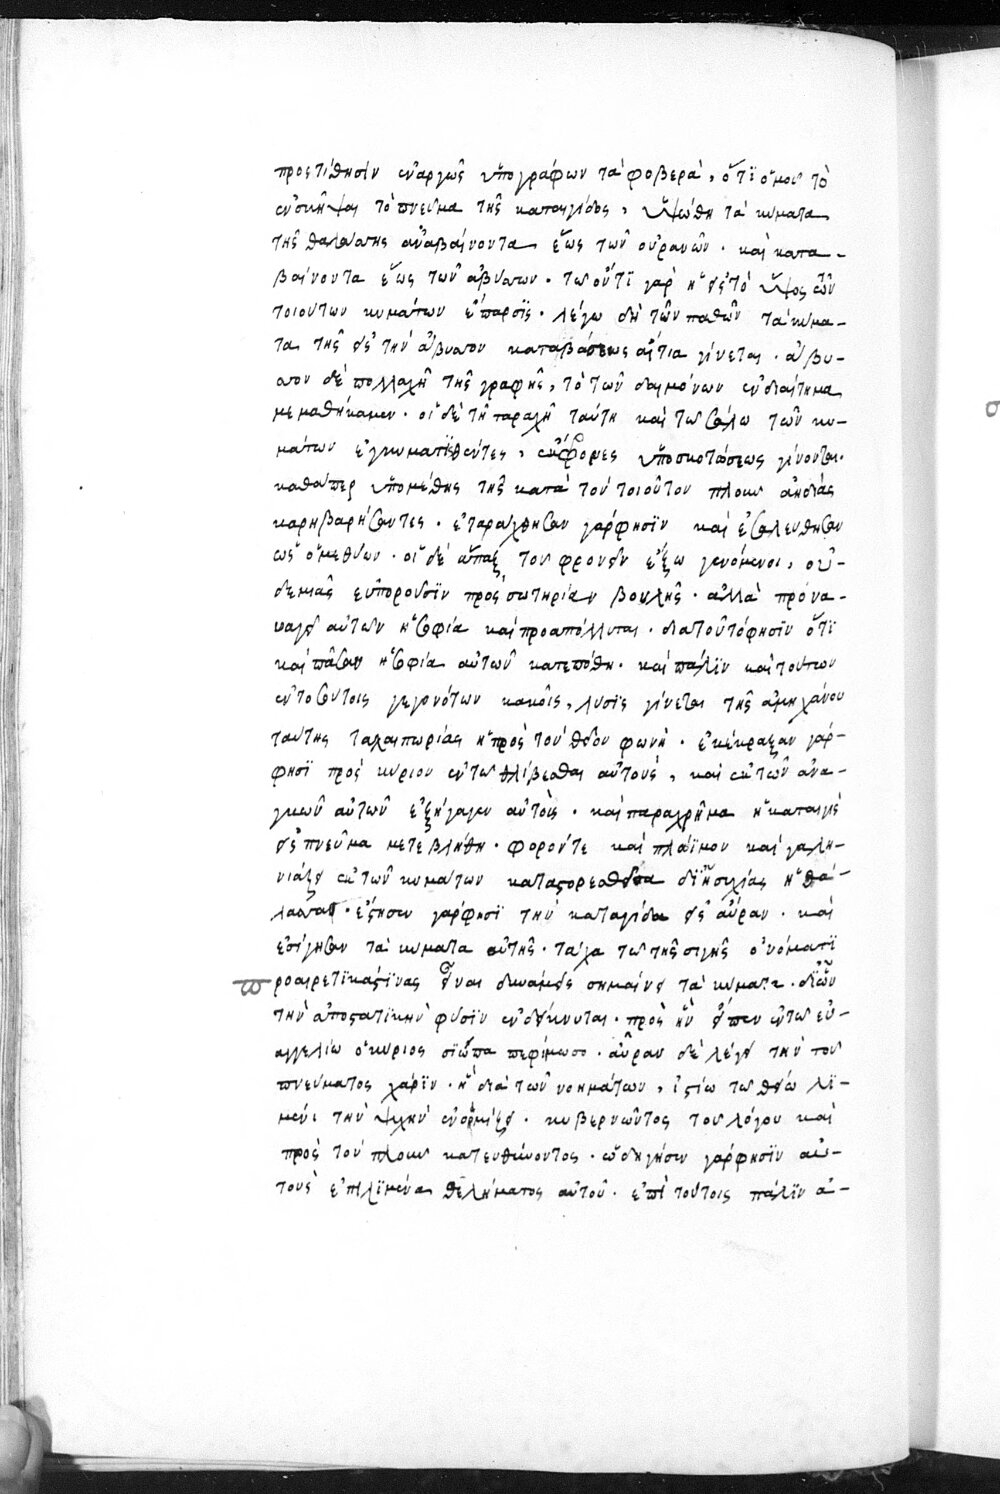 προστίθησϊν ἐναργῶς ὑπογράφων τὰ φοβερὰ, ὅτϊ ὁμοῦ τὸ
ἐνσκῆψαι τὸ πνεῦμα τῆς καταιγίδος, ὑψώθη τὰ κύματα
τῆς θαλάσσης ἀναβαίνοντα ἕως τῶν οὐρανῶν · καὶ κατα-
βαίνοντα ἕως τῶν ἀβύσσων · τουτέστϊ γὰρ ἡ εἰς τὸ ὕψος τῶν
τοιούτων κυμάτων ἔπαρσϊς · λέγω δὴ τῶν παθῶν τὰ κύμα-
τα τῆς εἰς τὴν ἄβυσσον καταβάσεως αἴτια γίνεται · ἄβυ-
σσον δὲ πολλαχῆ τῆς γραφῆς, τὸ τῶν δαιμόνων ἐνδιαίτημα
μεμαθήκαμεν · οἱ δὲ τῆ ταραχῆ ταύτη καὶ τῶ σάλω τῶν κυ-
μάτων ἐγκυματϊσθέντες, ἔκφορες ὑπὸ σκοτώσεως γίνονται ·
καθάπερ ὑπὸ μέθης τῆς κατὰ τὸν τοιοῦτον πλοῦν ἀηδίας
καρηβαρήσαντες · ἐταράχθησαν γάρ φησϊν καὶ ἐσαλεύθησαν
ὡς ὁ μεθύων · οἱ δὲ ἅπαξ τοῦ φρονεῖν ἔξω γενόμενοι, οὐ-
δεμιᾶς εὐποροῦσϊν πρὸς σωτηρίαν βουλῆς · ἀλλὰ πρὸ να-
υαγεῖ αὐτῶν ἡ σοφία καὶ προαπόλλυται · διὰ τοῦτό φησϊν ὅτϊ
καὶ πᾶσαν ἡ σοφία αὐτῶν κατεπόθη · καὶ πάλϊν καὶ τούτων
ἐν τοσούτοις γεγονότων κακοῖς, λύσϊς γίνεται τῆς ἀμηχάνου
ταύτης ταλαιπωρίας ἡ πρὸς τὸν θεὸν φωνὴ · ἐκέκραξαν γάρ-
φησϊ πρὸς κύριον ἐν τῶ θλίβεσθαι αὐτοὺς, καὶ ἐκ τῶν ἀνα-
γκῶν αὐτῶν ἐξήγαγεν αὐτοὺς · καὶ παραχρῆμα ἡ καταιγὶς
εἰς πνεῦμα μετεβλήθη · φορόν τε καὶ πλόϊμον καὶ γαλη-
νιάζει ἐκ τῶν κυμάτων καταστορεσθεῖσα δϊ ἡσυχίας ἡ θά-
λασσα · ἔστησεν γάρ φησϊ τὴν καταιγίδα εἰς αὔραν · καὶ
ἐσίγησαν τὰ κύματα αὐτῆς · τάχα τῶ τῆς σιγῆς ὀνόματϊ
προαιρετϊκάς τϊνας εἶναι δυνάμεις σημαίνει τὰ κύματα · δϊ ὧν
τὴν ἀποστατϊκὴν φύσϊν ἐνδείκνυται · πρὸς ἣν εἶπεν ἐν τῶ εὐ-
αγγελίω ὁ κύριος σϊώπα πεφίμωσο · αὔραν δὲ λέγει τὴν τοῦ
πνεύματος χάρϊν · ἡ διὰ τῶν νοημάτων, ἱστίω τῶ θείω λϊ-
μένι τὴν ψυχὴν ἐνορμίζει · κυβερνῶντος τοῦ λόγου καὶ
πρὸς τὸν πλοῦν κατευθύνοντος · ὡδήγησεν γάρ φησϊν αὐ-
τοὺς ἐπὶ λϊμένα θελήματος αὐτοῦ · ἐπὶ τούτοις πάλϊν ἀ-